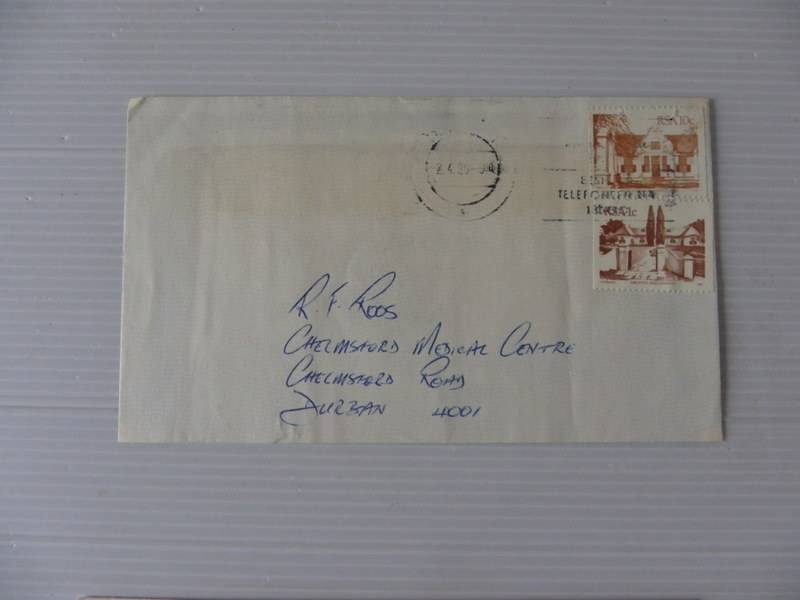 RSA 10c
2.4.85
TELEFONEER NA
RSA 1c
R. F. Roos
Chelmsford Medical Centre
Chelmsford Road
Durban 4001